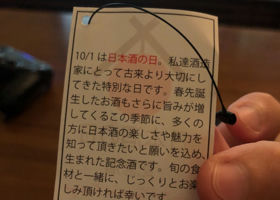 10/1は日本酒の日。私達酒造
家にとって古来より大切にし
てきた特別な日です。春先誕
生したお酒もさらに旨みが増
してくるこの季節に、多くの
方に日本酒の楽しさや魅力を
知って頂きたいと願いを込め、
生まれた記念酒です。旬の食
材と一緒に、じっくりとお楽
しみ頂ければ幸いです。